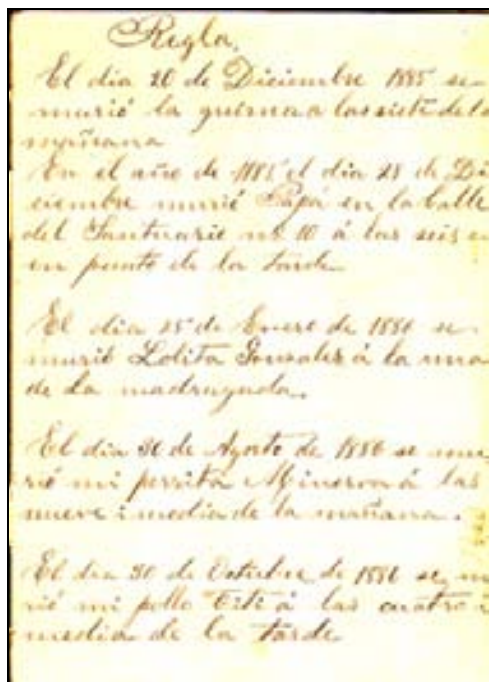 Regla.
El dia 20 de Diciembre 1885 se
murió la a las siete de la
mañana
En el año de 1885 el dia 28 de Di
ciembre murió Papá en la Calle
del Santuario no 10 á las seis
en punto de la tarde.
El dia 25 de Enero de 1886 se
murió Lolita Gonzales á la una
de la madrugada.
El dia de Agosto de 1886 se mu
rió mi perrita Minerva á las
nueve i media de la mañana.
El dia 30 de Octubre de 1886 se m
rió mi pollo Titi á las cuatro i
media de la tarde.